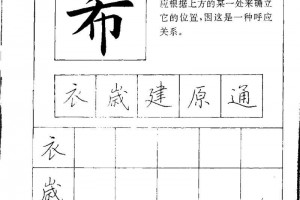 希
应根据上方的某一处来确立
它的位置,因这是一种呼应
关系。
衣 歳 建 原 通
衣
歳